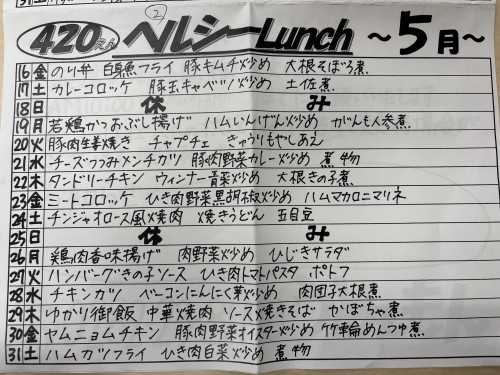 ② 
420えん ヘルシーLunch ～5月～
16 金 のり弁 白身魚フライ 豚キムチ炒め 大根そぼろ煮
17 土 カレーコロッケ 豚玉キャベツ炒め 土佐煮
18 日 休み
19 月 若鶏かつおぶし揚げ ハムいんげん炒め がんも人参煮
20 火 豚肉生姜焼き チャプチェ きゅうりもやしあえ
21 水 チーズつつみメンチカツ 豚肉野菜カレー炒め 煮物
22 木 タンドリーチキン ウィンナー青菜炒め 大根きの子煮
23 金 ミートコロッケ ひき肉野菜黒胡椒炒め ハムマカロニマリネ
24 土 チンジャオロース風焼肉 焼きうどん 五目豆
25 日 休み
26 月 鶏肉香味揚げ 肉野菜炒め ひじきサラダ
27 火 ハンバーグきの子ソース ひき肉トマトパスタ ポトフ
28 水 チキンカツ ベーコンにんにく芽炒め 肉団子大根煮
29 木 ゆかり御飯 中華焼肉 ソース焼きそば かぼちゃ煮
30 金 ヤムニョムチキン 豚肉野菜オイスター炒め 竹輪めんつゆ煮
31 土 ハムカツフライ ひき肉白菜炒め 煮物